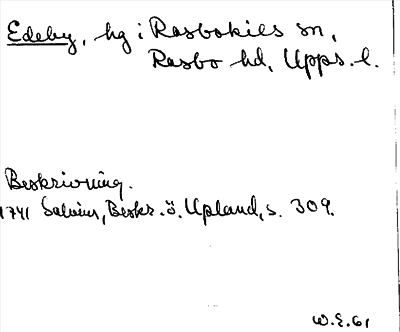 Edeby, hg i Rasbokils sn,
Rasbo hd, Upps. l.
Beskrivning.
1741 Salvius, Beskr. ö. Upland, s. 309.
W.E. 61